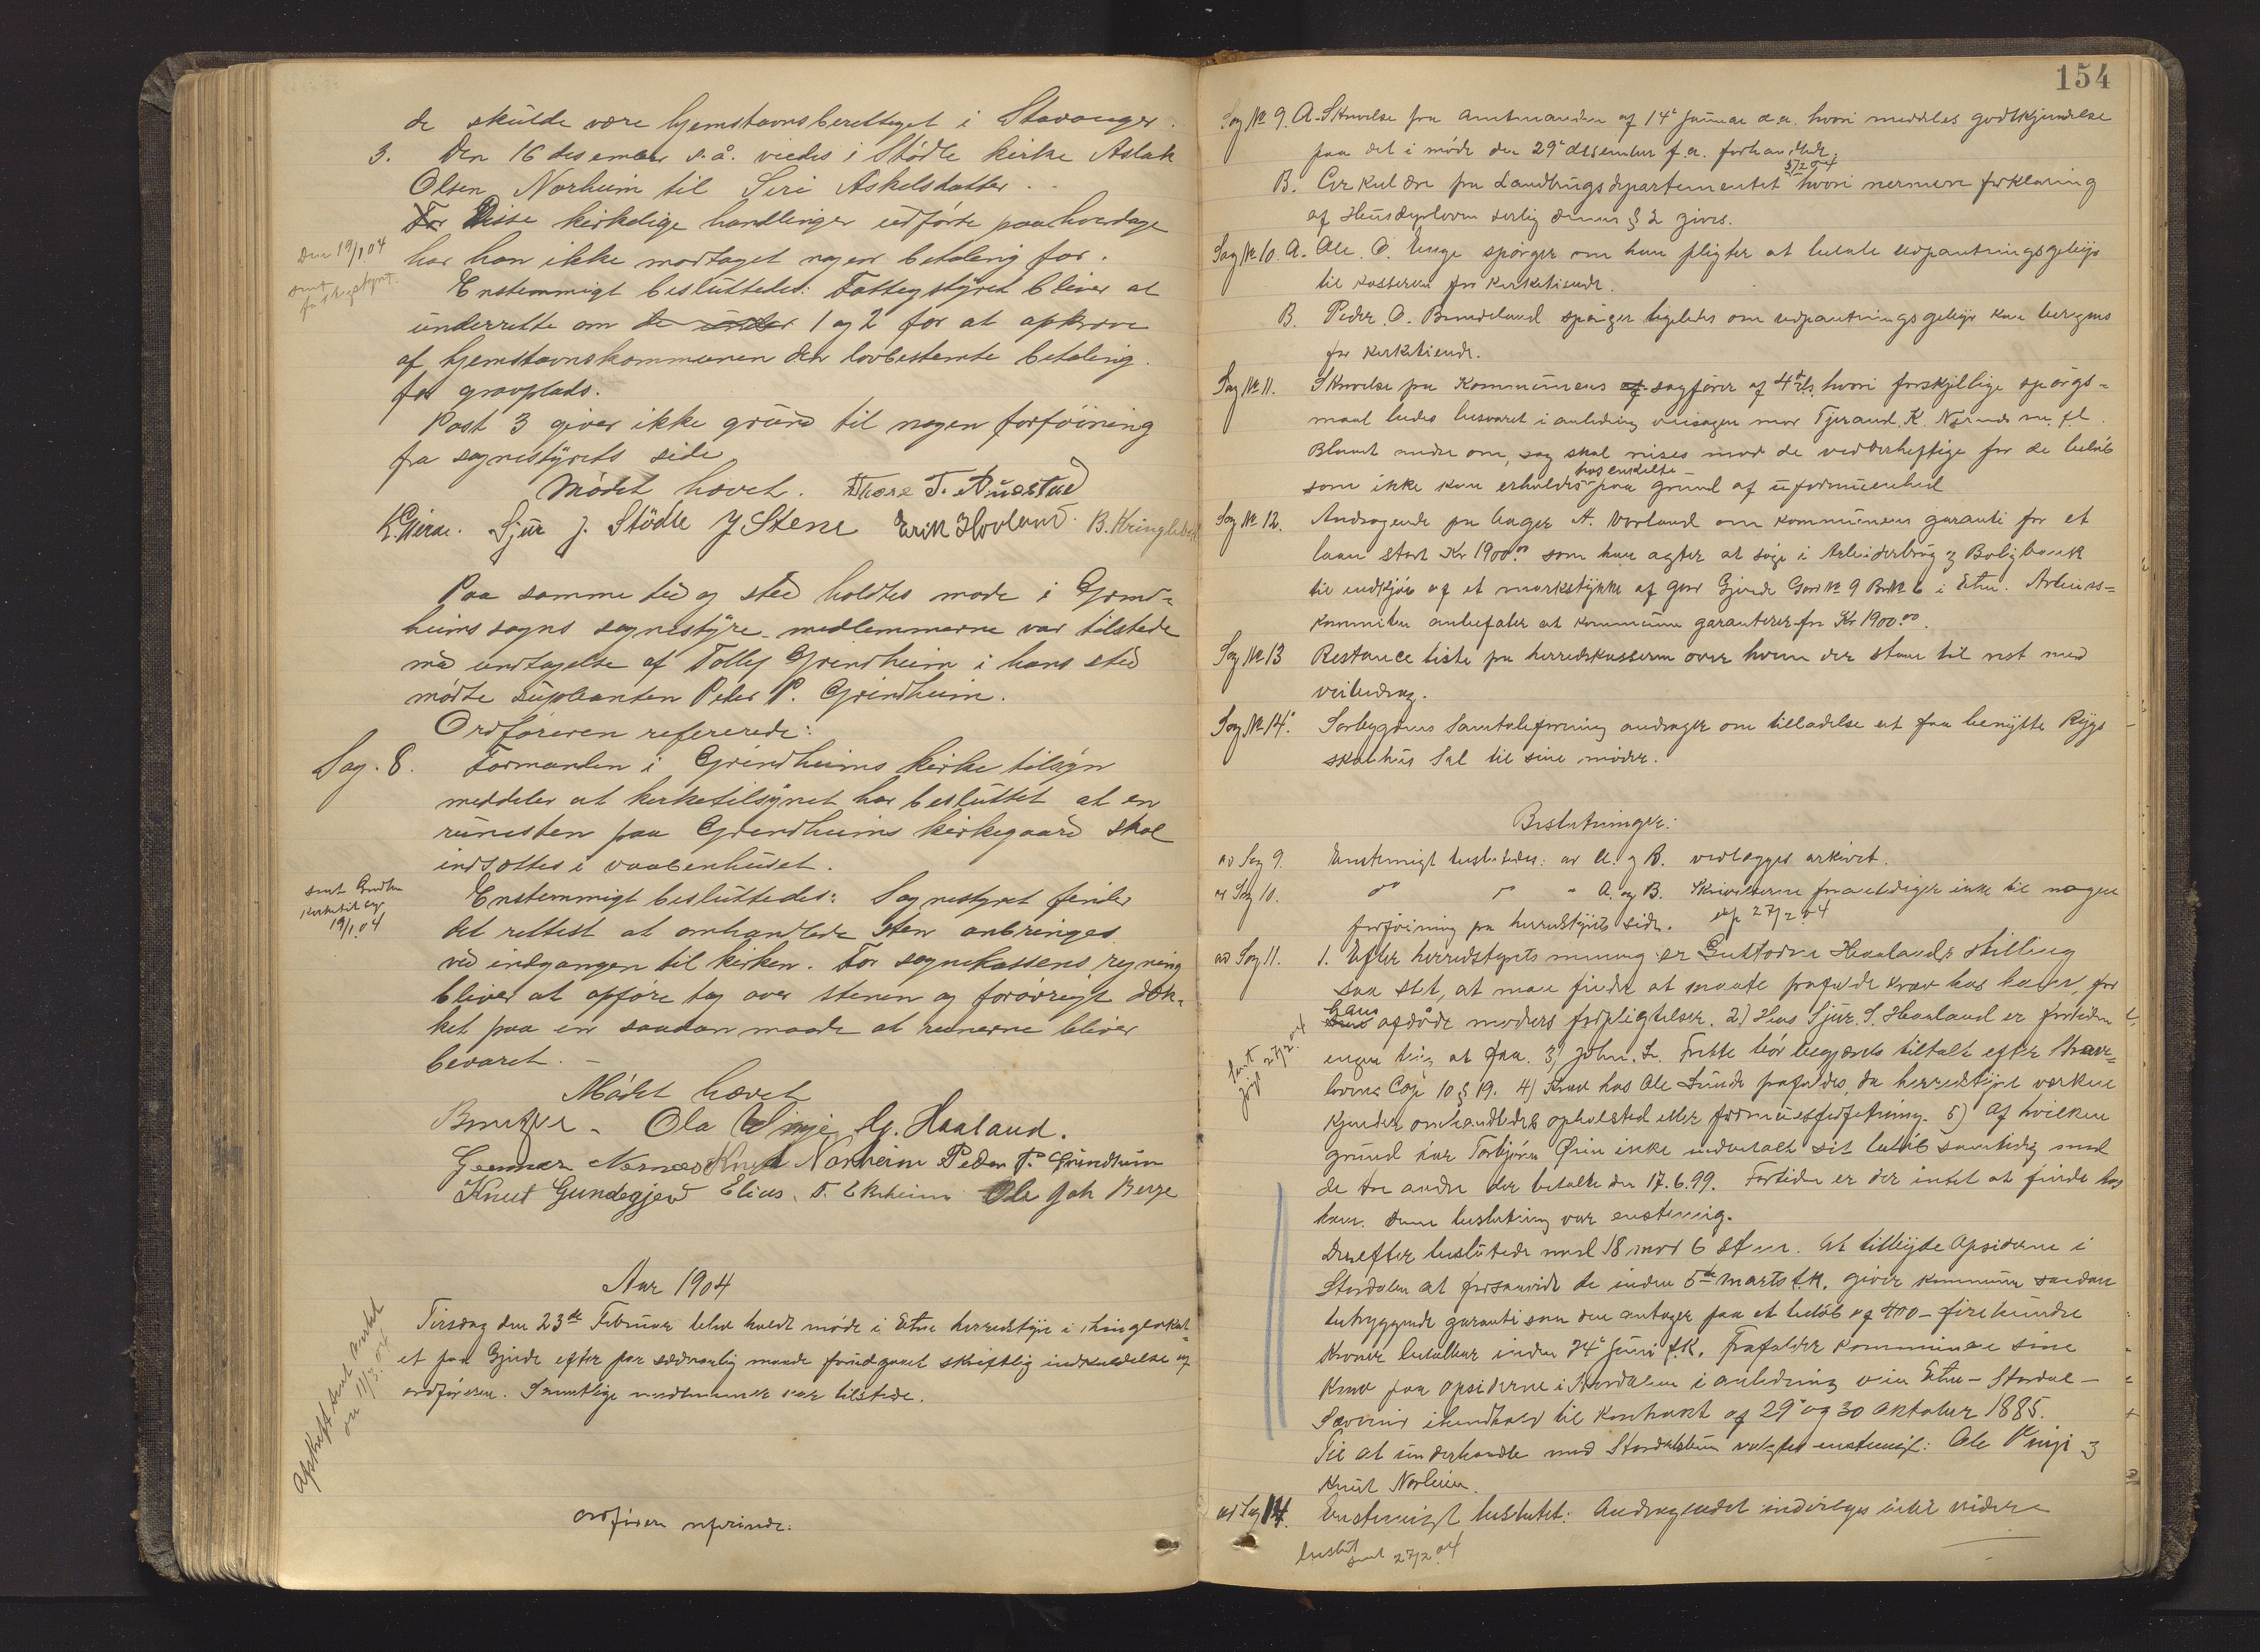 de skulde være hjemstavnsberettiget i Stavanger.
3. Den 16 desember s.å. viedes i Stødle kirke Aslak
Olsen Norheim til Siri Askelsdatter.
Disse kirkelige handlinger udførte paa hverdage
har han ikke modtaget nogen betaling for.
Den 19/1 04
sent
Enstemmigt besluttedes: Fattigstyret bliver at
underrette om 1 og 2 for at opkræve
af hjemstavnskommunen den lovbestemte betaling
for gravplads.
Post 3 giver ikke grund til nogen forføining
fra sognestyrets side
Mødet hævet. Thore T. Auestad
K. Gjerde. Sjur J. Stødle J Stene Erik Hovland. B. Kringlebot
Paa samme tid og sted holdtes møde i Grind-
heims sogns sognestyre. medlemmerne var tilstede
med undtagelse af Tollef Grindheim i hans sted
mødte suppleanten Peder P. Grindheim.
Ordføreren refererede:
Sag. 8. Formanden i Grindheims kirketilsyn
meddeler at kirketilsynet har besluttet at en
runesten paa Grindheims kirkegaard skal
indsættes i vaabenhuset.
sent Grindheim
kirketilsyn
19/1 04
Enstemmigt besluttedes: Sognestyret finder
det rettest at omhandlede sten anbringes
ved indgangen til kirken. For sognekassens regning
bliver at opføre tag over stenen og forøvrigt dæk-
ket paa en saadan maade at runerne bliver
bevaret.
Mødet hævet
Ola Vinje G. Haaland.
Gunnar Nernæs Knut Norheim Peder P. Grindheim
Knut Gundegjerd Elias T. Ekrheim Ole Joh Berge
Aar 1904
Tirsdag den 23de Februar blev holdt møde i Etne herredstyre i thinglokal-
et paa Gjerde efter paa sædvanlig maade foregaaet skriftlig indkaldelse af
ordføreren. Samtlige medlemmer var tilstede.
Afskrift sent amtet
den 11/3 04
Ordføreren refererede:
154
Sag № 9. A. Skrivelse fra Amtmanden af 14de Januar d.a. hvori meddeles godkjendelse
paa det i møde den 29de desember f.a. forhandlede.
5/2 04
B. Cirkulære fra Landbrugsdepartementet hvori nermere forklaring
af Husdyrloven serlig dennes § 2 gives.
Sag № 10. A. Ole O. Enge spørger om han pligter at betale udpantningsgebyr
til kasseren for kirketiende.
B. Peder O. Brundeland spørger ligeledes om udpantningsgebyr kan beregnes
for kirketiende.
Sag № 11. Skrivelse fra Kommunens sagfører af 4de ds. hvori forskjellige spørgs-
maal bedes besvaret i anledning veisagen mod Tjerand K. m. fl.
Blandt andre om, sag skal reises mod de vedderheftige for de beløb
som ikke kan erholdes hos enkelte paa grund af uformuenhed
Sag № 12. Andragende fra A. Vorland om kommunens garanti for et
laan stort Kr 1900.00 som han agter at søge i Arbeiderbrug og Boligbank
til indkjøb af et markstykke af gaar Gjerde Gard № 9 Br № 6 i Etne. Arbeids-
komiteen anbefaler at kommunen garanterer for Kr 1900.00.
Sag № 13 Restanceliste fra herredskasseren over hvem der staar til rest med
veibidrag.
Sag № 14. Sørbygdens Samtaleforening andrager om tilladelse at faa benytte Ryg-
skathus Sal til sine møder.
Beslutninger:
ad Sag 9. Enstemigt besluttedes: ad A. og B. vedlægges arkivet.
ad Sag 10. " " " A. og B. Skrivelserne foranlediger ikke til nogen
forføining fra herredstyrets side. exp 27/2 04
ad Sag 11. 1. Efter herredstyrets mening er Guttorm Haaland's stilling
saa slet, at man finder at maate frafalde krav hos ham, for
hans afdøde moders forpligtelser. 2) Hos Sjur S. Haaland er fortiden
ingen ting at faa. 3) John L. Fritte bør begjæres tiltalt efter Straf-
lovens Cap 10 § 19. 4) Krav hos Ole Lunde frafaldes, da herredstyret verken
kjender omhandledes opholdsted eller formuesforfatning. 5) Af hvilken
grund har Torbjørn Øien ikke indbetalt sit beløb samtidig med
de tre andre der betalte den 17.6.99. Fortiden er der intet at finde hos
ham. Denne beslutning var enstemig.
Sent
27/2 04
Derefter besluttede med 18 mod 6 stemr. At tilbyde Opsiderne i
Stordalen at forsaavidt de inden 5te marts f.k. giver kommunen saadan
betryggende garanti som den antager paa et beløb af 400 - firehundre
Kroner betalbar inden 24de Juni f.k. frafalder kommunen sine
Krav paa opsiderne i Stordalen i anledning veien Etne - Stordal -
Sævareid ihenhold til Kontrakt af 29de og 30 oktober 1885.
Til at underhandle med Stordalebuen valgtes enstemigt: Ole Vinje og
Knut Norheim.
ad Sag 14. Enstemigt besluttet: Andragendet indvilges intil videre
beslut
sent 27/2 04